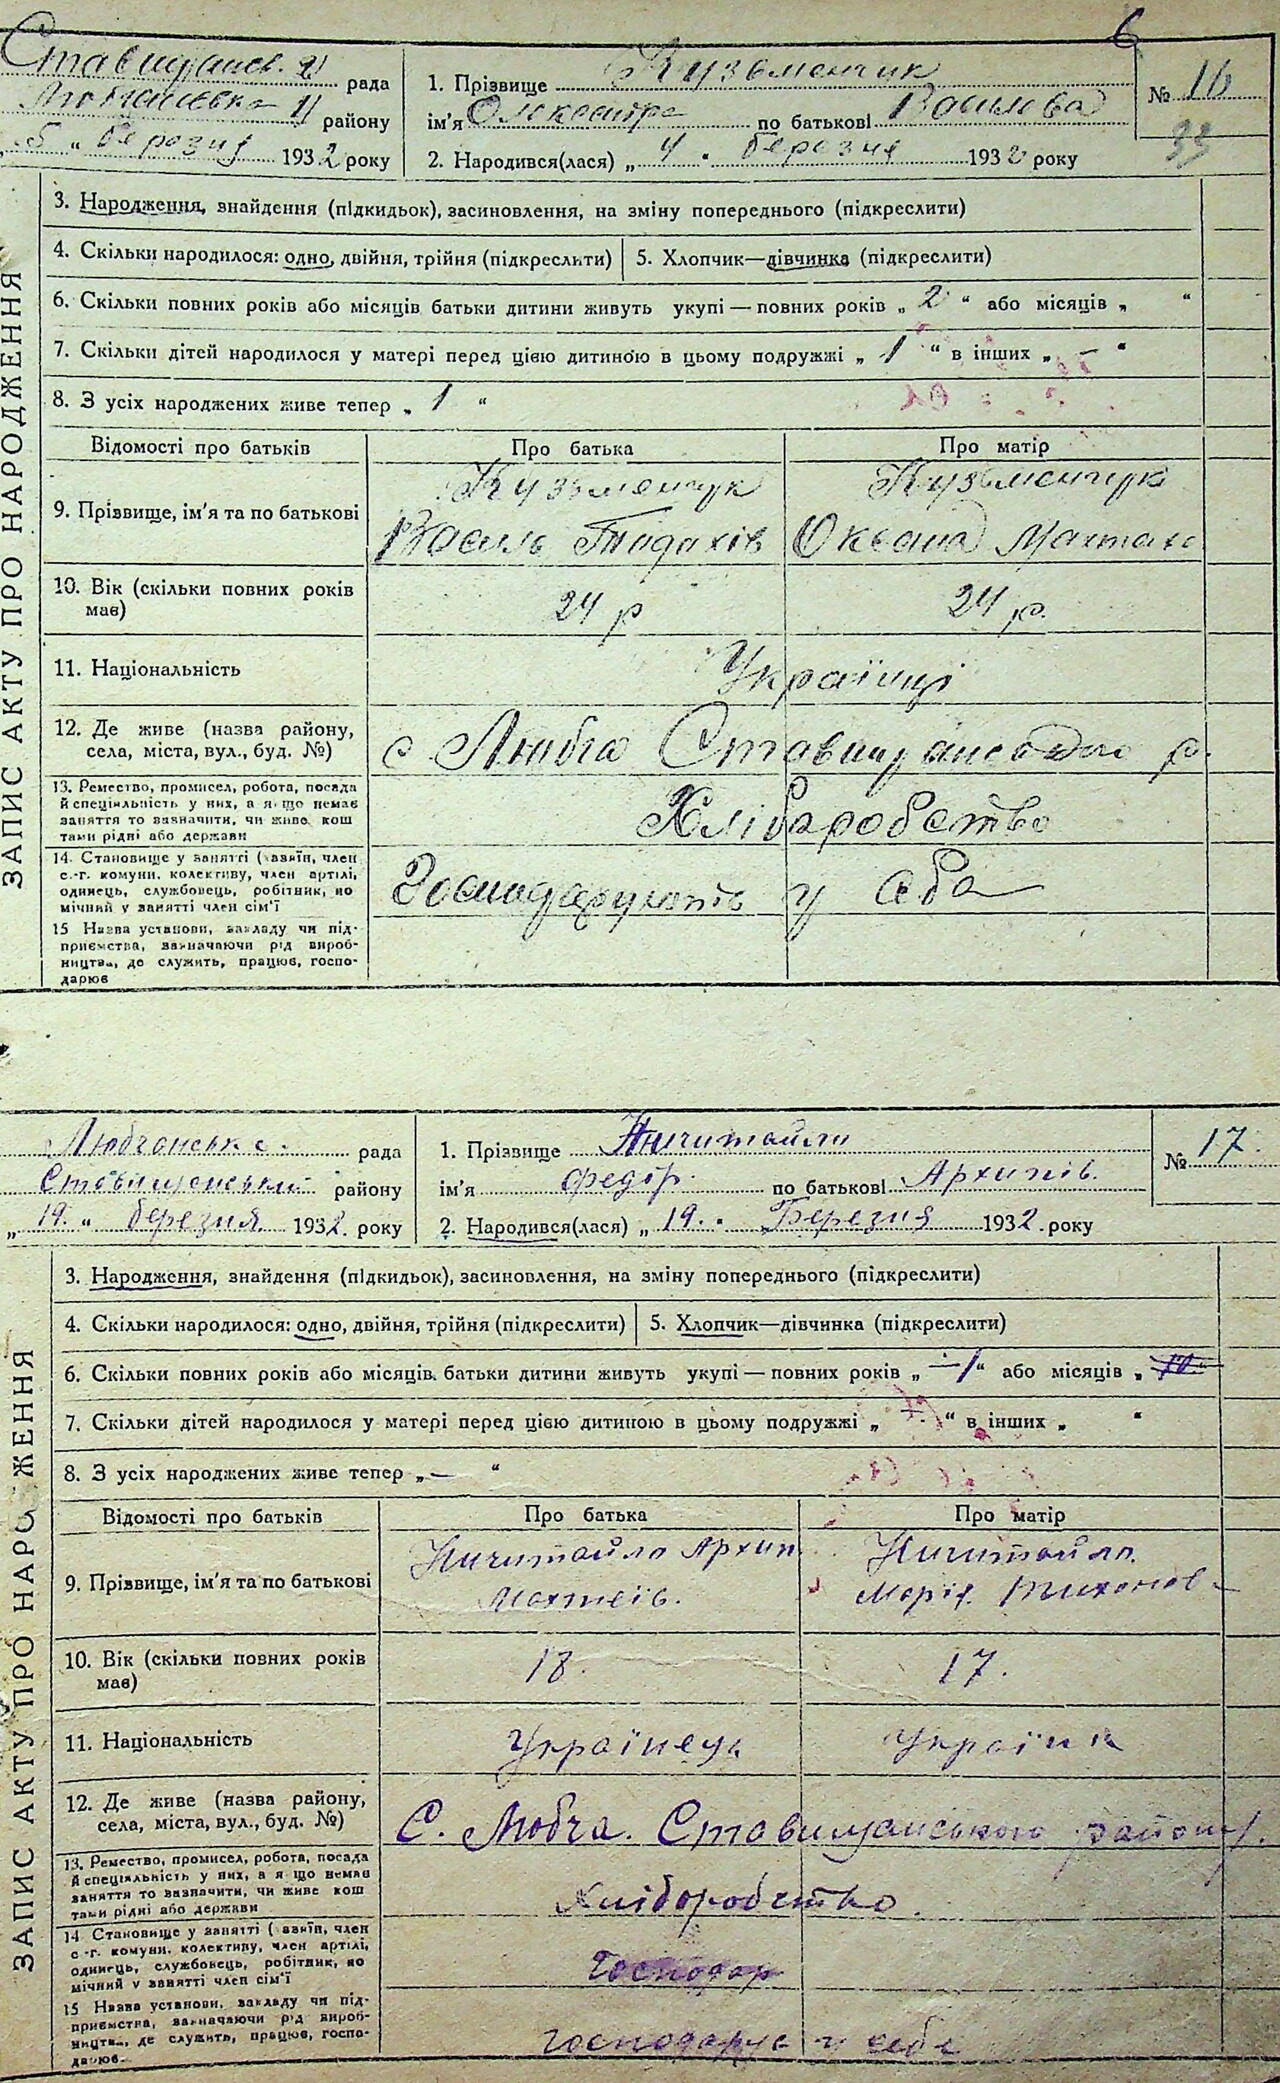 6
Ставищанськ. 2) рада
1) району
„ 5 “ березня 1932 року
1. Прізвище Кузьменчик
ім'я Олександра по батькові Василева
2. Народився(лася) „ 4 “ березня 1932 року
№ 16
33
ЗАПИС АКТУ ПРО НАРОДЖЕННЯ
3. Народження, знайдення (підкидьок), засиновлення, на зміну попереднього (підкреслити)
4. Скільки народилося: одно, двійня, трійня (підкреслити) 5. Хлопчик—дівчинка (підкреслити)
6. Скільки повних років або місяців батьки дитини живуть укупі — повних років „ 2 “ або місяців „ “
7. Скільки дітей народилося у матері перед цією дитиною в цьому подружжі „ 1 “ в інших „ – “
8. З усіх народжених живе тепер „ 1 “
Відомості про батьків Про батька Про матір
9. Прізвище, ім'я та по батькові
Кузьменчук Кузьменчук
Василь Оксана
10. Вік (скільки повних років має)
24 р 24 р.
11. Національність
Українці
12. Де живе (назва району, села, міста, вул., буд. №)
с. Любча Ставищанського р.
13. Ремество, промисел, робота, посада й спеціяльність у них, а якщо немає заняття то зазначити, чи живе кош тами рідні або держави
Хліборобство
14. Становище у занятті (хазяїн, член с.-г. комуни, колективу, член артілі, одинець, службовець, робітник, по мічний у занятті член сім'ї
Господарують у себе
15 Назва установи, закладу чи підприємства, зазначаючи рід виробництва, де служить, працює, господарює
Любчанська рада
Ставищанський району
„ 19. “ березня 1932. року
1. Прізвище Ничитайло
ім'я Федір. по батькові Архипів.
2. Народився(лася) „ 19. “ Березня 1932. року
№ 17.
ЗАПИС АКТУ ПРО НАРОДЖЕННЯ
3. Народження, знайдення (підкидьок), засиновлення, на зміну попереднього (підкреслити)
4. Скільки народилося: одно, двійня, трійня (підкреслити) 5. Хлопчик—дівчинка (підкреслити)
6. Скільки повних років або місяців батьки дитини живуть укупі — повних років „ 1 “ або місяців „ 10 “
7. Скільки дітей народилося у матері перед цією дитиною в цьому подружжі „ “ в інших „ “
8. З усіх народжених живе тепер „ — “
Відомості про батьків Про батька Про матір
9. Прізвище, ім'я та по батькові
Ничитайло Архип Ничитайло.
Махтеів. Марія Тихонов
10. Вік (скільки повних років має)
18. 17.
11. Національність
Українець Українка
12. Де живе (назва району, села, міста, вул., буд. №)
С. Любча. Ставищанського району.
13. Ремество, промисел, робота, посада й спеціяльність у них, а якщо немає заняття то зазначити, чи живе кош тами рідні або держави
Хліборобство.
14 Становище у занятті (хазяїн, член с-г. комуни, колективу, член артілі, одинець, службовець, робітник, по мічний у занятті член сім'ї
Господар
15 Назва установи, закладу чи підприємства, зазначаючи рід виробництва, де служить, працює, господарює
господарує у себе